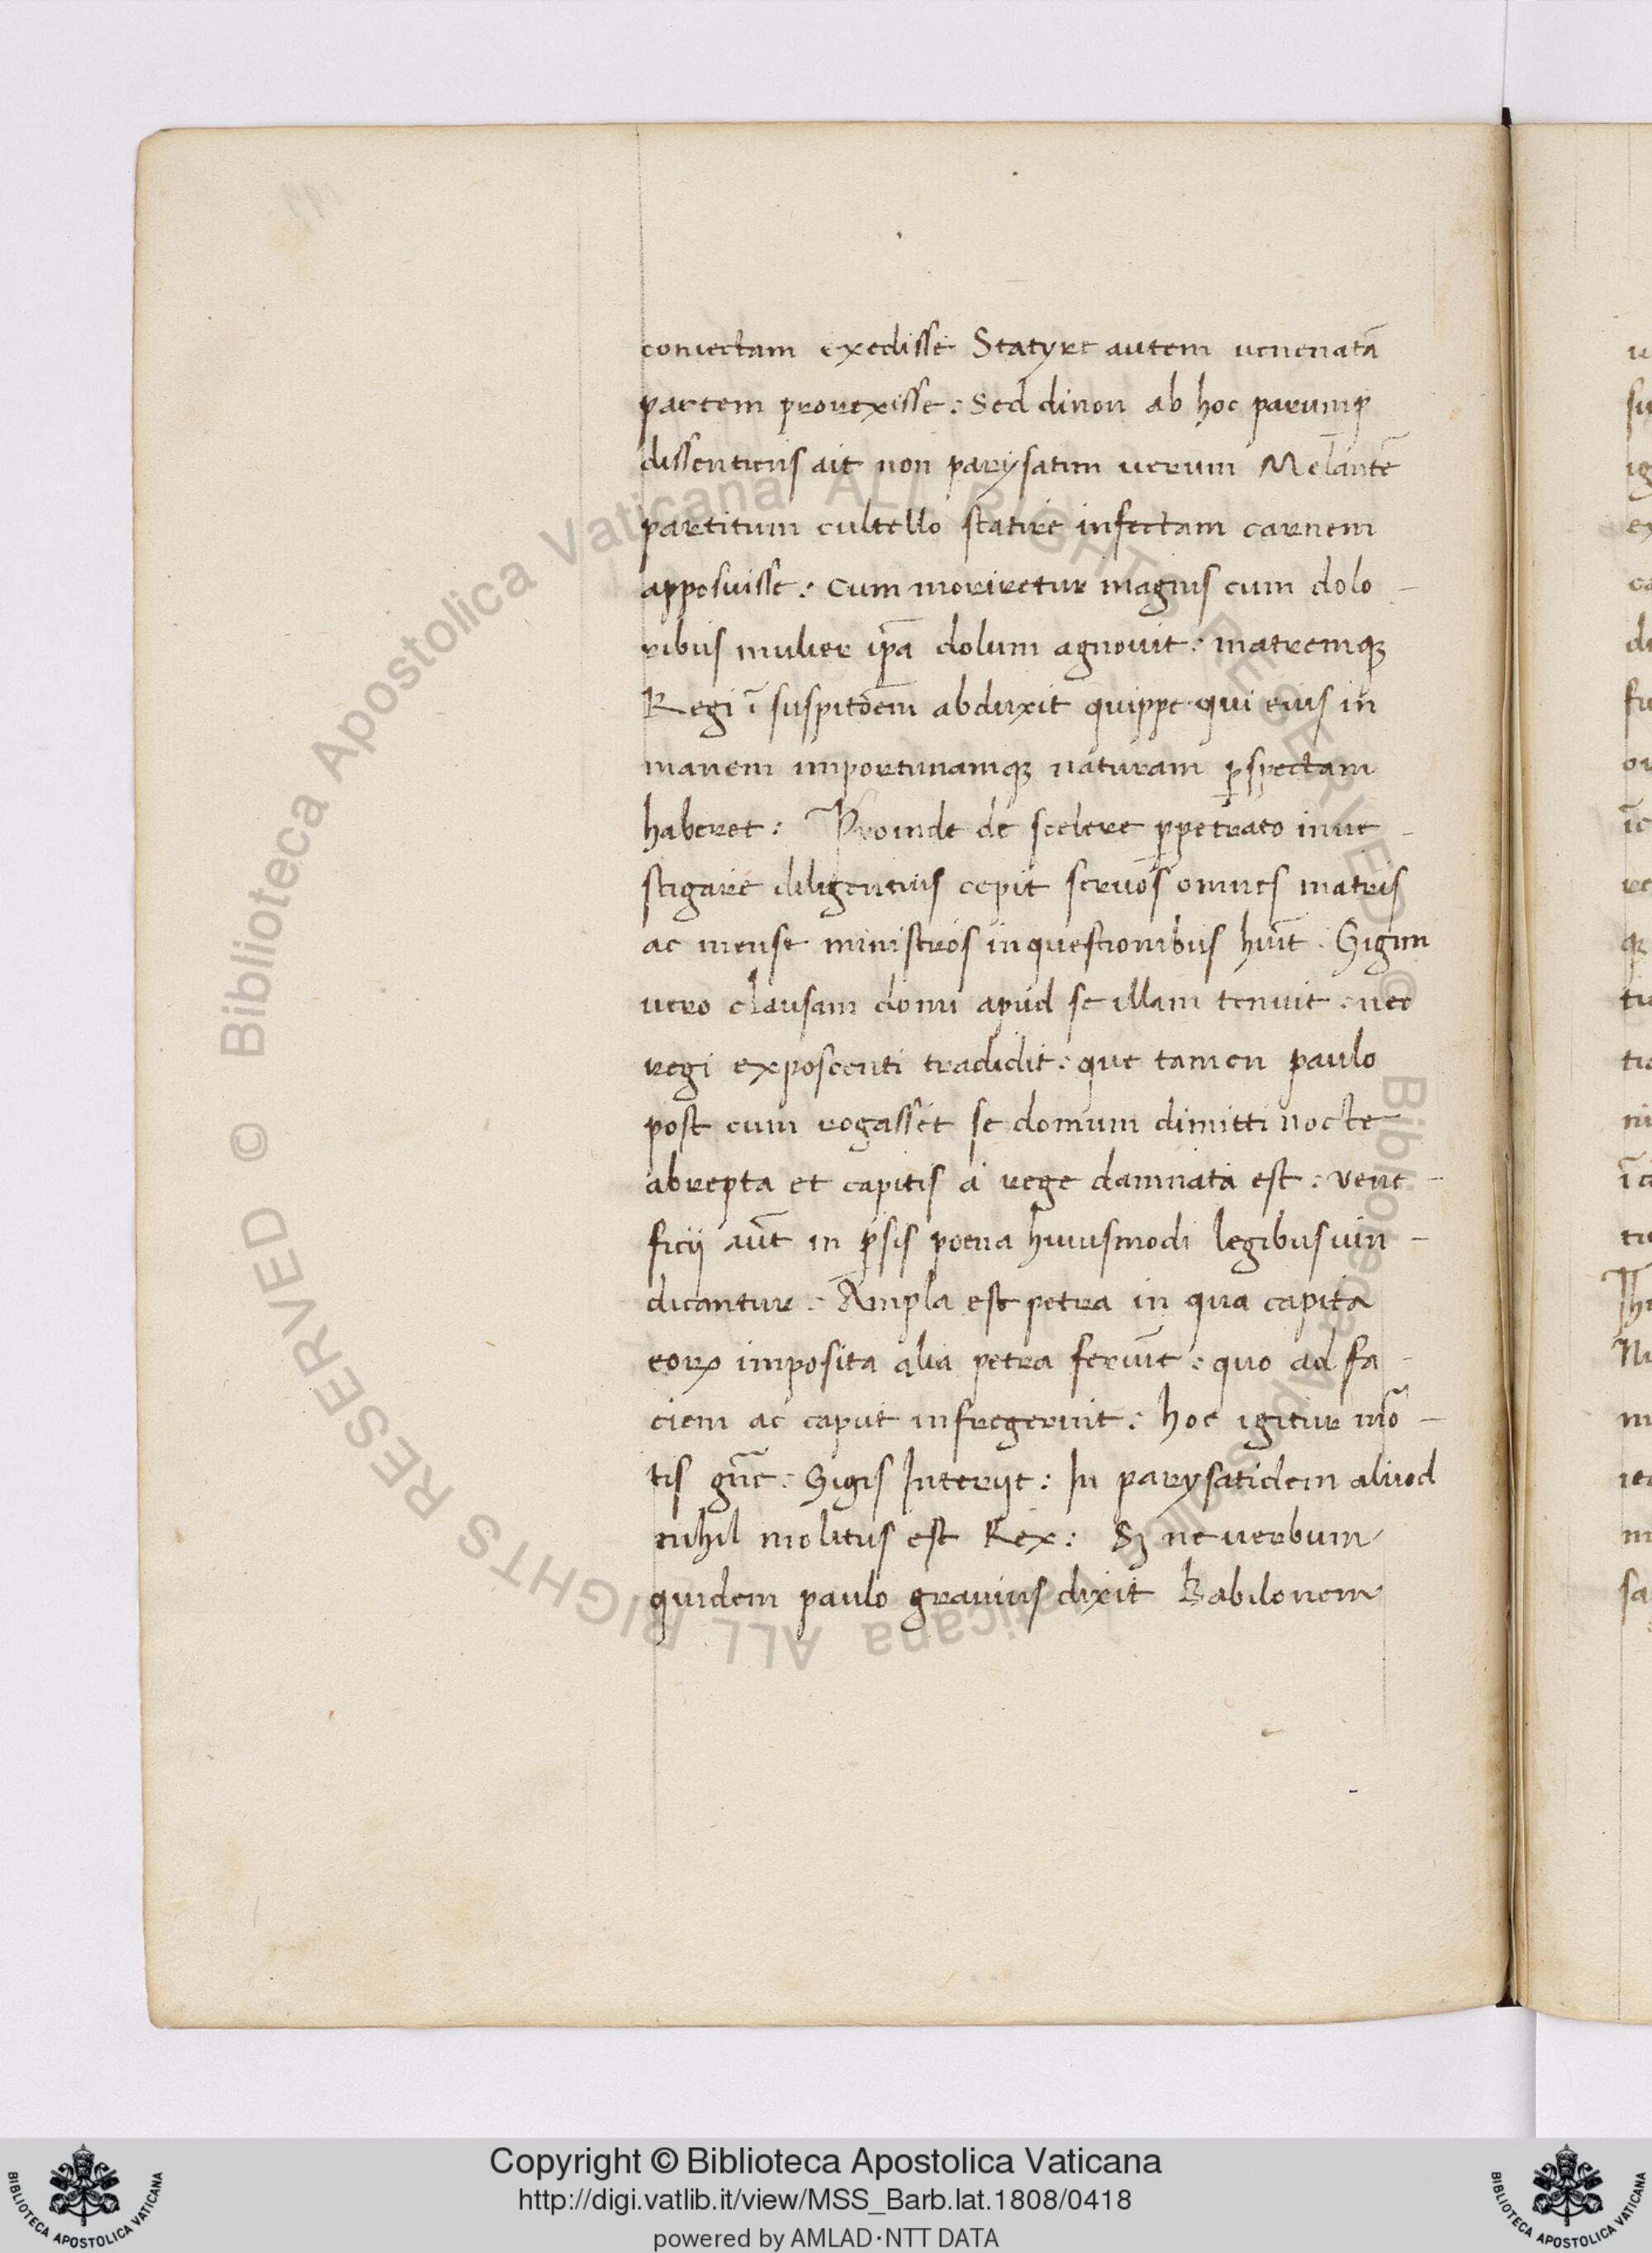 coniectam exedisse Statyre autem uenenatā
partem prorexisse: Sed dinon ab hoc parump̄
dissentiens ait non parysatim uerum Melantē
partitum cultello statire infectam carnem
apposuisse: Cum moriretur magnis cum dolo-
ribus mulier ip̄a dolum agnouit: matremq;
Regi ī suspitōem abduxit quippe qui eius in
manem importunamq; naturam ꝑspectam
haberet: Proinde de scelere ꝑpetrato inue-
stigare diligentius cepit seruos omnes matris
ac mense ministros in questionibus huīt. Gigim
uero clausam domi apud se illam tenuit. nec
regi exposcenti tradidit: que tamen paulo
post cum rogasset se domum dimitti nocte
abrepta et capitis a rege damnata est: vene-
ficij aūt in ꝑsis poena huiusmodi legibus uin-
dicantur. Ampla est petra in qua capita
eoꝝ imposita alia petra feriūt: quo ad fa-
ciem ac caput infregerint: hoc igitur mō-
tis gn̄e: Gigis Interijt: In parysatidem aliud
nihil molitus est Rex: Sꝫ ne uerbum
quidem paulo grauius dixit Babilonem
Copyright © Biblioteca Apostolica Vaticana
http://digi.vatlib.it/view/MSS_Barb.lat.1808/0418
powered by AMLAD·NTT DATA
BIBLIOTECA APOSTOLICA VATICANA
BIBLIOTECA APOSTOLICA VATICANA
© Biblioteca Apostolica Vaticana ALL RIGHTS RESERVED © Biblioteca Apostolica Vaticana ALL RIGHTS RESERVED